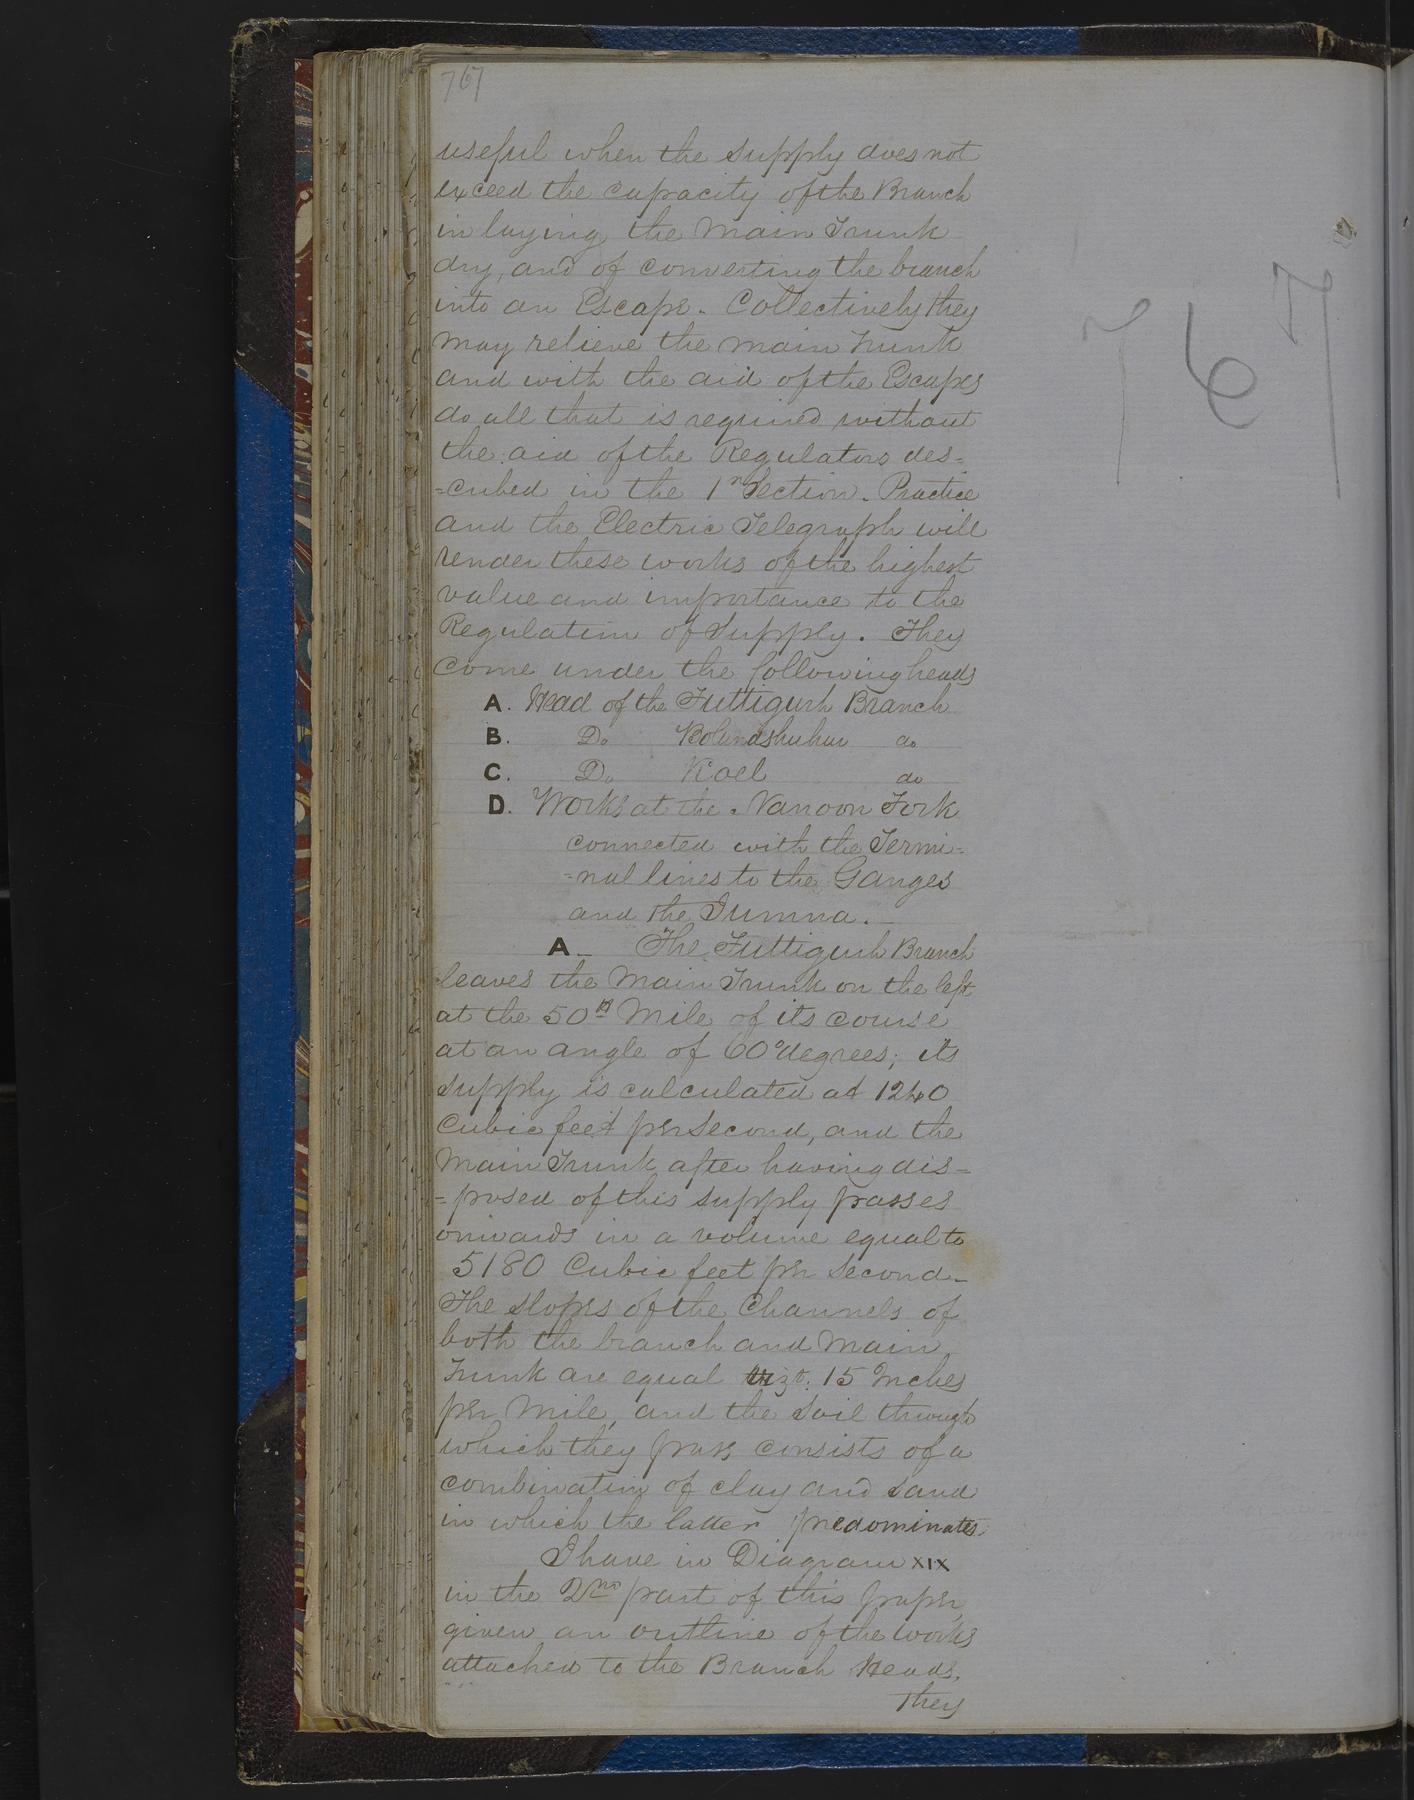 767
767
useful when the supply does not
exceed the capacity of the Branch
in laying the Main Trunk
dry, and of converting the branch
into an Escape. Collectively they
may relieve the main Trunk
and with the aid of the Escapes
do all that is required without
the aid of the Regulators des=
=cribed in the 1st Section. Practice
and the Electric Telegraph will
render these works of the highest
value and importance to the
Regulation of Supply. They
come under the following heads
A. Head of the Futtigurh Branch
B. Do Bolundshuhur do
C. Do Koel do
D. Works at the Nanoon Fork
connected with the Termi=
=nal lines to the Ganges
and the Jumna.
A_ The Futtigurh Branch
leaves the Main Trunk on the left
at the 50th Mile of its course
at an angle of 60° degrees; its
supply is calculated at 1240
Cubic feet per second, and the
Main Trunk after having dis=
=posed of this supply passes
onwards in a volume equal to
5180 Cubic feet per second_
The slopes of the Channels of
both the branch and Main
Trunk are equal vizt. 15 Inches
per Mile, and the soil through
which they pass consists of a
combination of clay and sand
in which the latter predominates.
I have in Diagram XIX
in the 2nd part of this paper
given an outline of the works
attached to the Branch Heads.
They